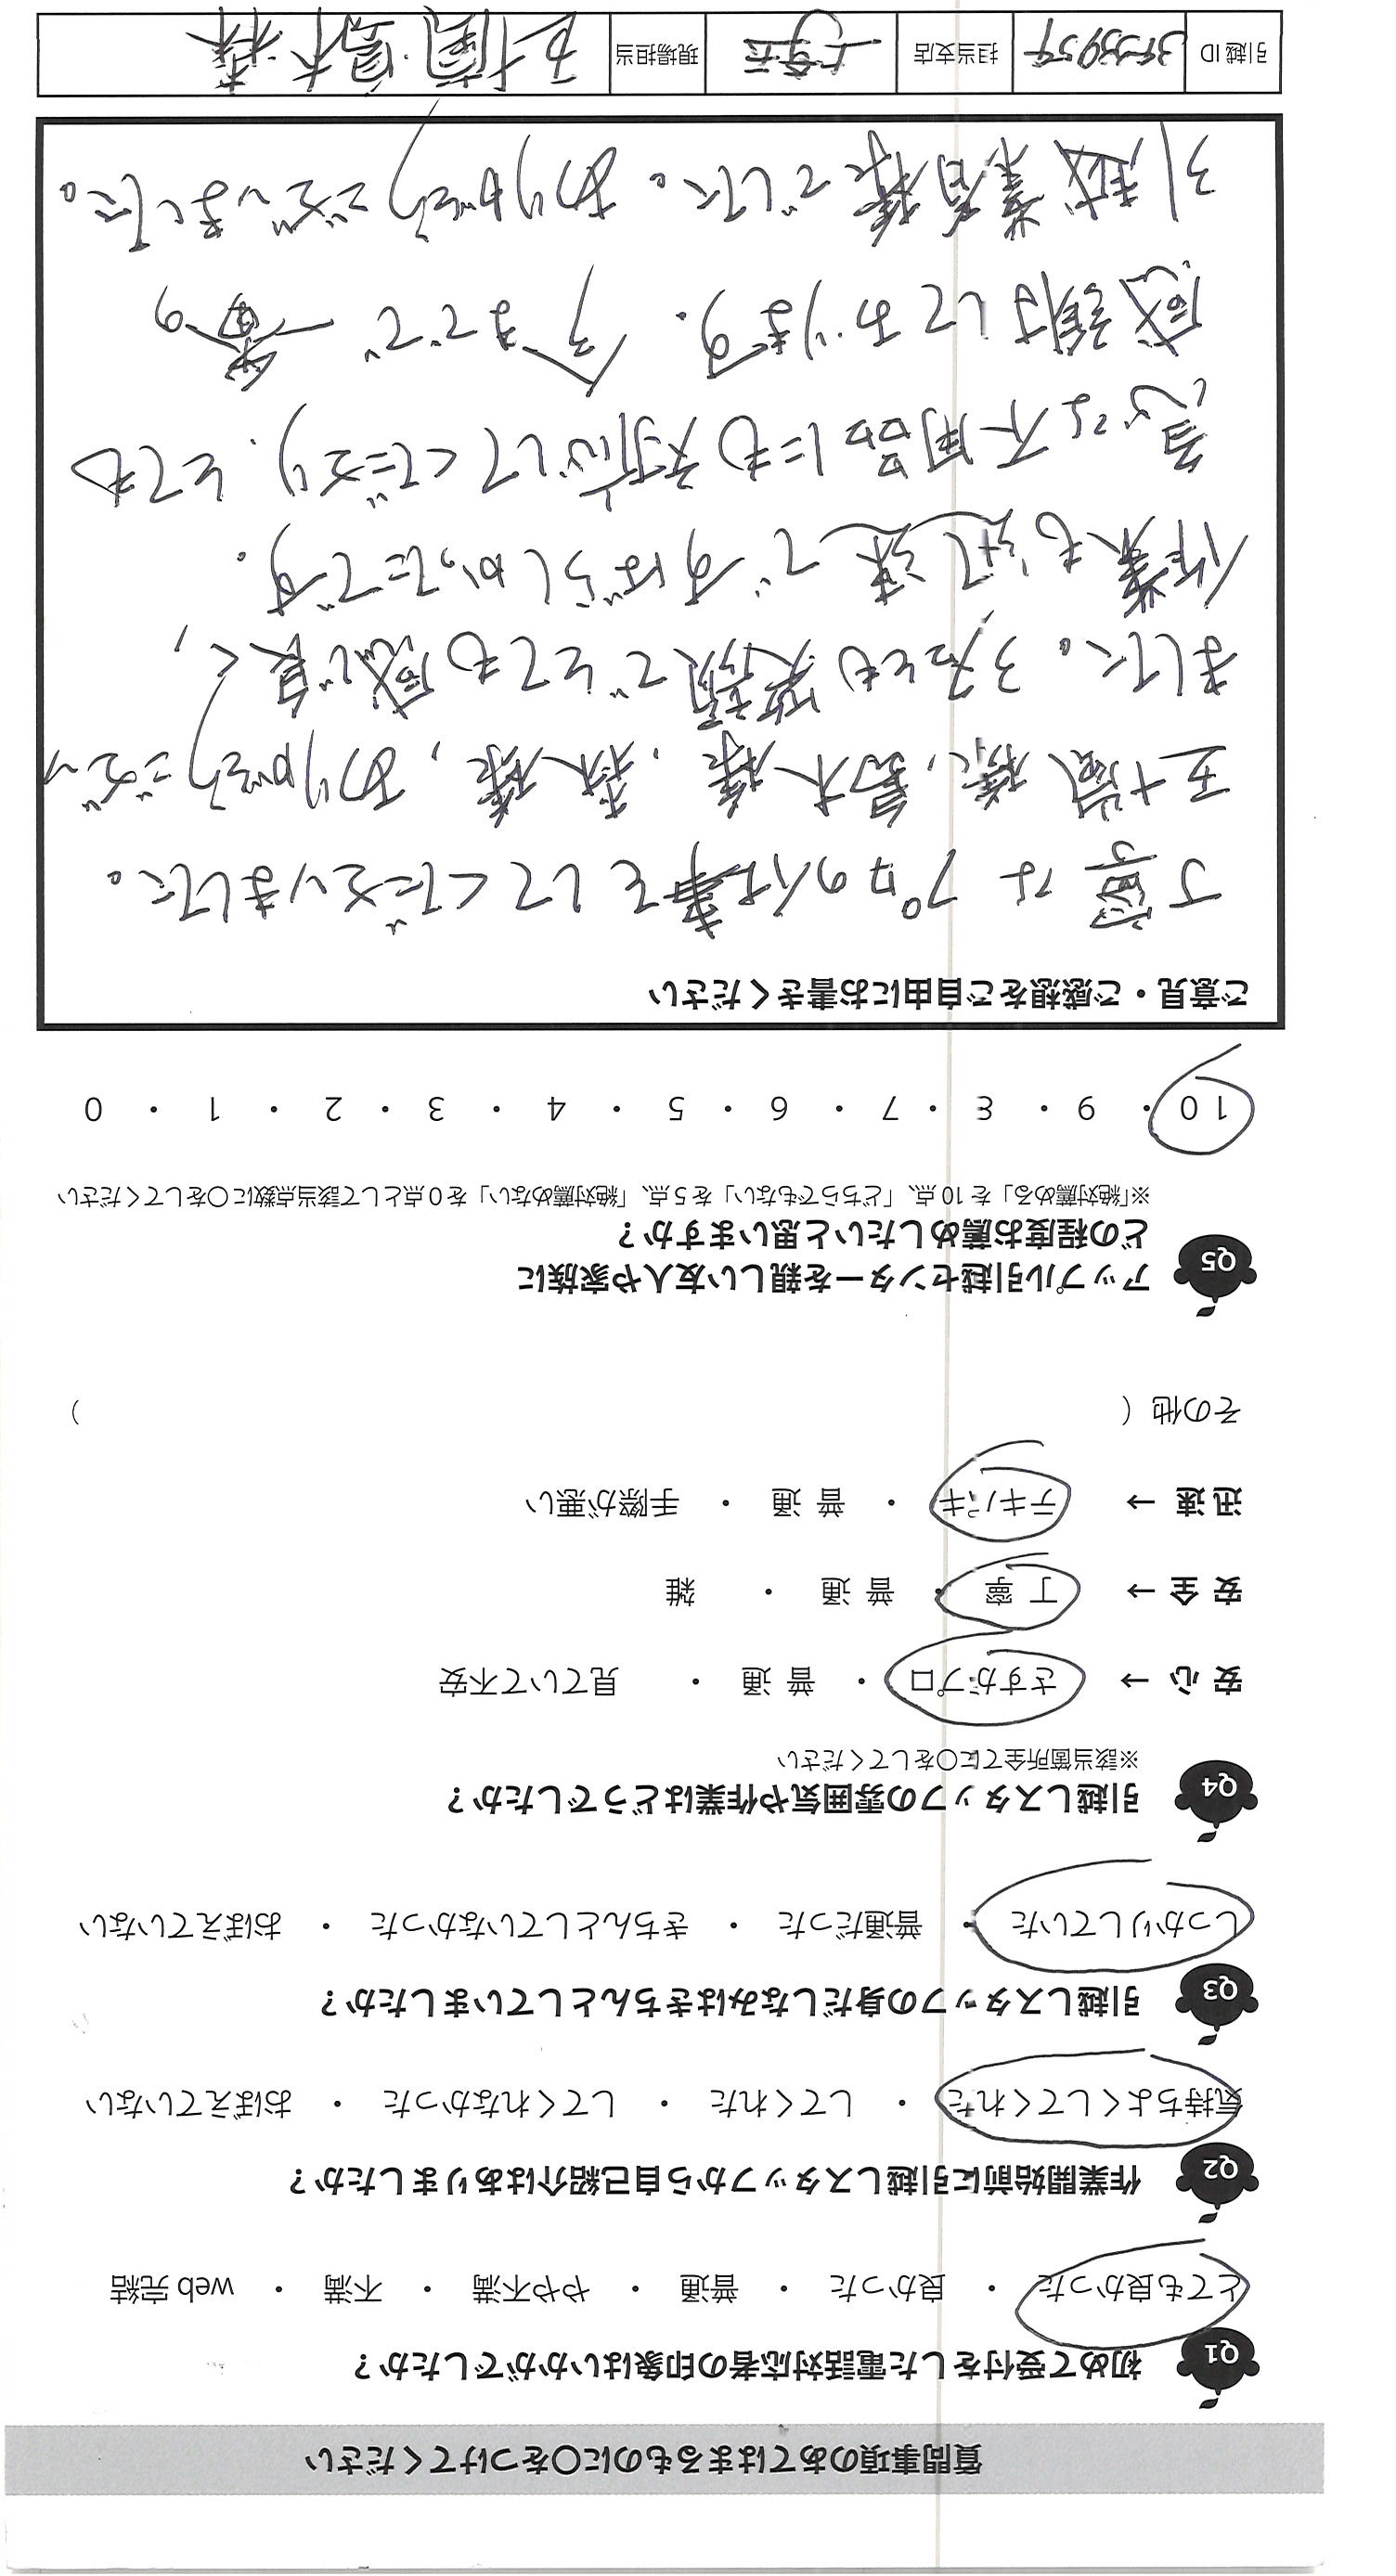 質問事項のあてはまるものに○をつけてください
Q1 初めて受付をした電話対応者の印象はいかがでしたか?
とても良かった ・ 良かった ・ 普通 ・ やや不満 ・ 不満 ・ web 完結
Q2 作業開始前に引越しスタッフから自己紹介はありましたか?
気持ちよくしてくれた ・ してくれた ・ してくれなかった ・ おぼえていない
Q3 引越しスタッフの身だしなみはきちんとしていましたか?
しっかりしていた ・ 普通だった ・ きちんとしていなかった ・ おぼえていない
Q4 引越しスタッフの雰囲気や作業はどうでしたか?
※該当箇所全てに○をしてください
安 心 → さすがプロ ・ 普 通 ・ 見ていて不安
安 全 → 丁 寧 ・ 普 通 ・ 雑
迅 速 → テキパキ ・ 普 通 ・ 手際が悪い
その他 ( )
Q5 アップル引越センターを親しい友人や家族に
どの程度お薦めしたいと思いますか?
※「絶対薦める」を 10 点、「どちらでもない」を 5 点、「絶対薦めない」を 0 点として該当点数に○をしてください
10 ・ 9 ・ 8 ・ 7 ・ 6 ・ 5 ・ 4 ・ 3 ・ 2 ・ 1 ・ 0
ご意見・ご感想をご自由にお書きください
丁寧なプロの仕事をしてくださいました。
五十嵐様、鳥木様、森様、ありがとうござい
ました。3名とも笑顔でとても感じ良く、
作業も迅速ですばらしかったです。
急な不用品にも対応してくださり、とても
感謝しております。今までで一番の
引越業者様でした。ありがとうございました。
引越 ID 担当支店 現場担当 鳥木 森